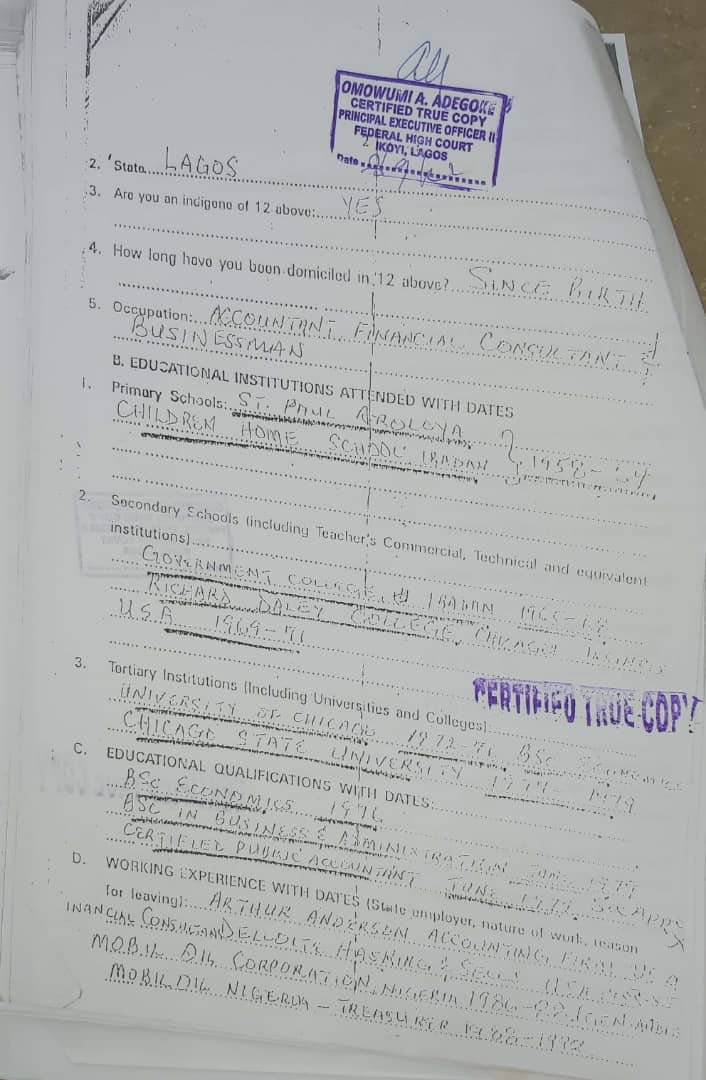 OMOWUMI A. ADEGOKE
CERTIFIED TRUE COPY
PRINCIPAL EXECUTIVE OFFICER II
FEDERAL HIGH COURT
IKOYI, LAGOS
Date
2. State LAGOS
3. Are you an indigene of 12 above: YES
4. How long have you been domiciled in 12 above? SINCE BIRTH
5. Occupation: ACCOUNTANT, FINANCIAL CONSULTANT &
BUSINESSMAN
B. EDUCATIONAL INSTITUTIONS ATTENDED WITH DATES
1. Primary Schools: ST. PAUL AROLOYA
CHILDREN HOME SCHOOL IBADAN 1958-64
2. Secondary Schools (including Teacher's Commercial, Technical and equivalent
institutions)
GOVERNMENT COLLEGE IBADAN
RICHARD DALEY COLLEGE, CHICAGO ILLINOIS
U.S.A 1969-71
CERTIFIED TRUE COPY
3. Tertiary Institutions (Including Universities and Colleges):
UNIVERSITY OF CHICAGO 1972-76 BSc ECONOMICS
CHICAGO STATE UNIVERSITY 1979
C. EDUCATIONAL QUALIFICATIONS WITH DATES:
BSc ECONOMICS 1976
BSC IN BUSINESS & ADMINISTRATION JUNE 1979
CERTIFIED PUBLIC ACCOUNTANT JUNE 1979
D. WORKING EXPERIENCE WITH DATES (State employer, nature of work, reason
for leaving): ARTHUR ANDERSON ACCOUNTING FIRM US A
INANCIAL CONSULTANT DELLOITE HASKING & SELLS USA
MOBIL OIL CORPORATION, NIGERIA 1986-88
MOBIL OIL NIGERIA - TREASURER 1988-1992